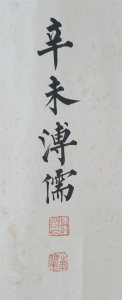 辛未溥儒